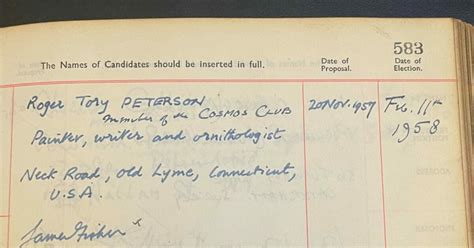 583
The Names of Candidates should be inserted in full.
Date of
Proposal.
Date of
Election.
Roger Tory PETERSON
member of the COSMOS CLUB
20 Nov. 1957
Feb. 11th
1958
Painter, writer and ornithologist
Neck Road, Old Lyme, Connecticut,
U.S.A.
James Fisher